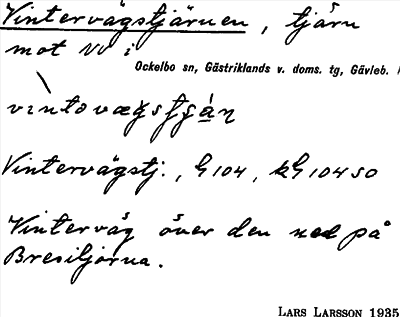 Vintervägstjärnen, tjärn
mot NV i
Ockelbo sn, Gästriklands v. doms. tg, Gävleb.
Vintervägstj., G 104, kG 104 SO
Vinterväg över den ned på
Bresiljorna.
LARS LARSSON 1935